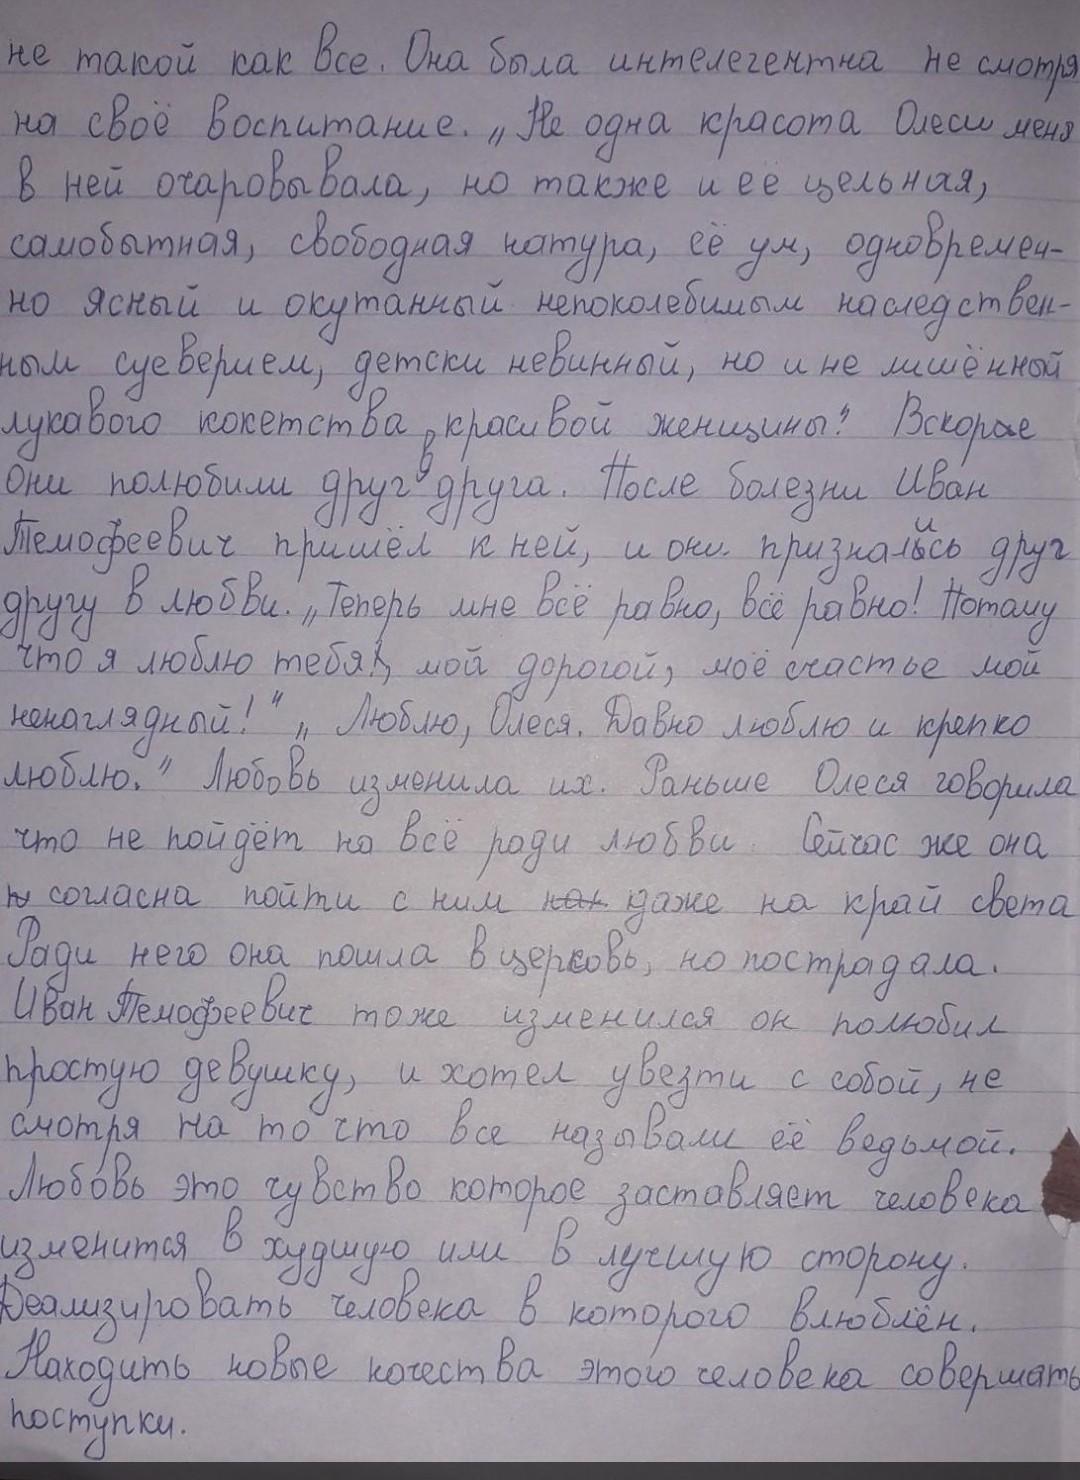 не такой как все. Она была интелегентна не смотря
на своё воспитание. „Не одна красота Олеси меня
в ней очаровывала, но также и её цельная,
самобытная, свободная натура, её ум, одновремен-
но ясный и окутанный непоколебимым наследствен-
ным суеверием, детски невинный, но и не лишённый
лукавого кокетства красивой женщины“. Вскоре
они полюбили друг в друга. После болезни Иван
Темофеевич пришёл к ней, и они признались друг
другу в любви. „Теперь мне всё равно, всё равно! Потому
что я люблю тебя, мой дорогой, моё счастье мой
ненаглядный!“ „Люблю, Олеся. Давно люблю и крепко
люблю.“ Любовь изменила их. Раньше Олеся говорила
что не пойдёт на всё ради любви. Сейчас же она
согласна пойти с ним как даже на край света
Ради него она пошла в церковь, но пострадала.
Иван Темофеевич тоже изменился он полюбил
простую девушку, и хотел увезти с собой, не
смотря на то что все называли её ведьмой.
Любовь это чувство которое заставляет человека
изменится в худшую или в лучшую сторону.
Деализировать человека в которого влюблён.
Находить новые качества этого человека совершать
поступки.